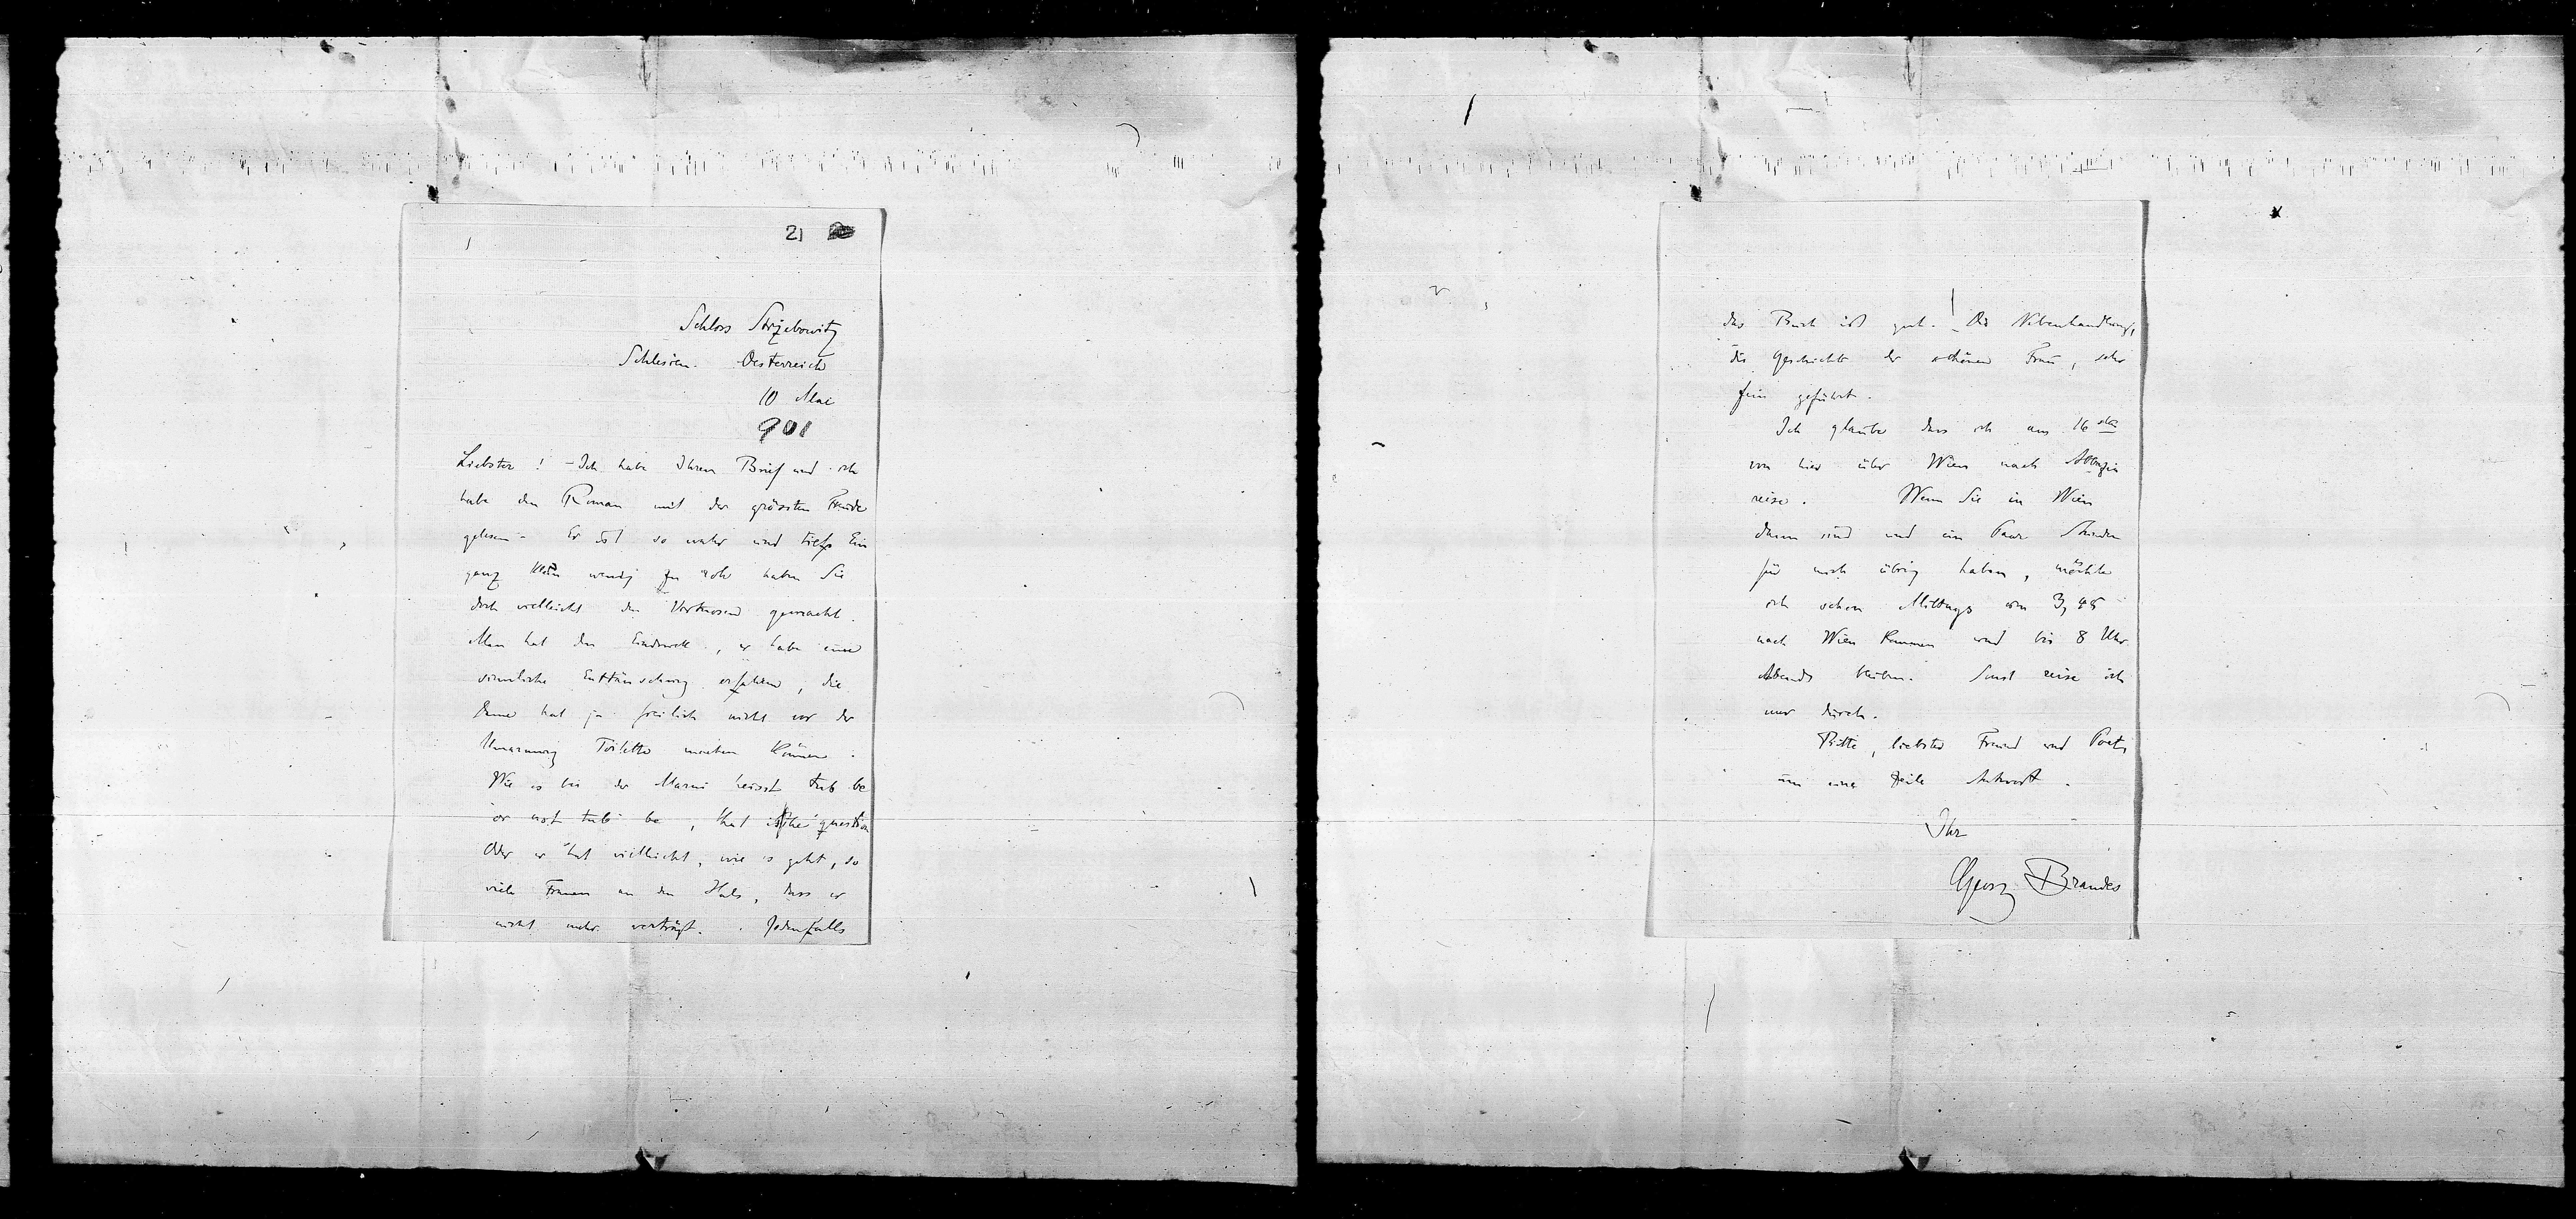 21
Schloss Strzebowitz
Schlesien. Oesterreich
10 Mai
901
Liebster! – Ich habe Ihren Brief und ich
habe den Roman mit der grössten Freude
gelesen – Er ist so wahr und tief. Ein
ganz klein wenig zu roh haben Sie
doch vielleicht den Virtuosen gemacht.
Man hat den Eindruck, er habe eine
sinnliche Enttäuschung erfahren, die
Dame hat ja freilich nicht vor der
Umarmung Toilette machen können.
Wie es bei der Marni heisst tub be
or not tub be, that is the question
Oder er hat vielleicht, wie es geht, so
viele Frauen an den Hals, dass er
nicht mehr verträgt. Jedenfalls
das Buch ist gut. Die Nebenhandlung,
die Geschichte der schönen Frau, sehr
fein geführt.
Ich glaube dass ich am 16ten
von hier über Wien nach Abbazia
reise. Wenn Sie in Wien
dann sind und ein Paar Stunden
für mich übrig haben, möchte
ich schon Mittags um 3,45
nach Wien kommen und bis 8 Uhr
Abends bleiben. Sonst reise ich
nur durch.
Bitte, liebster Freund und Poet,
um eine Zeile Antwort.
Ihr
Georg Brandes